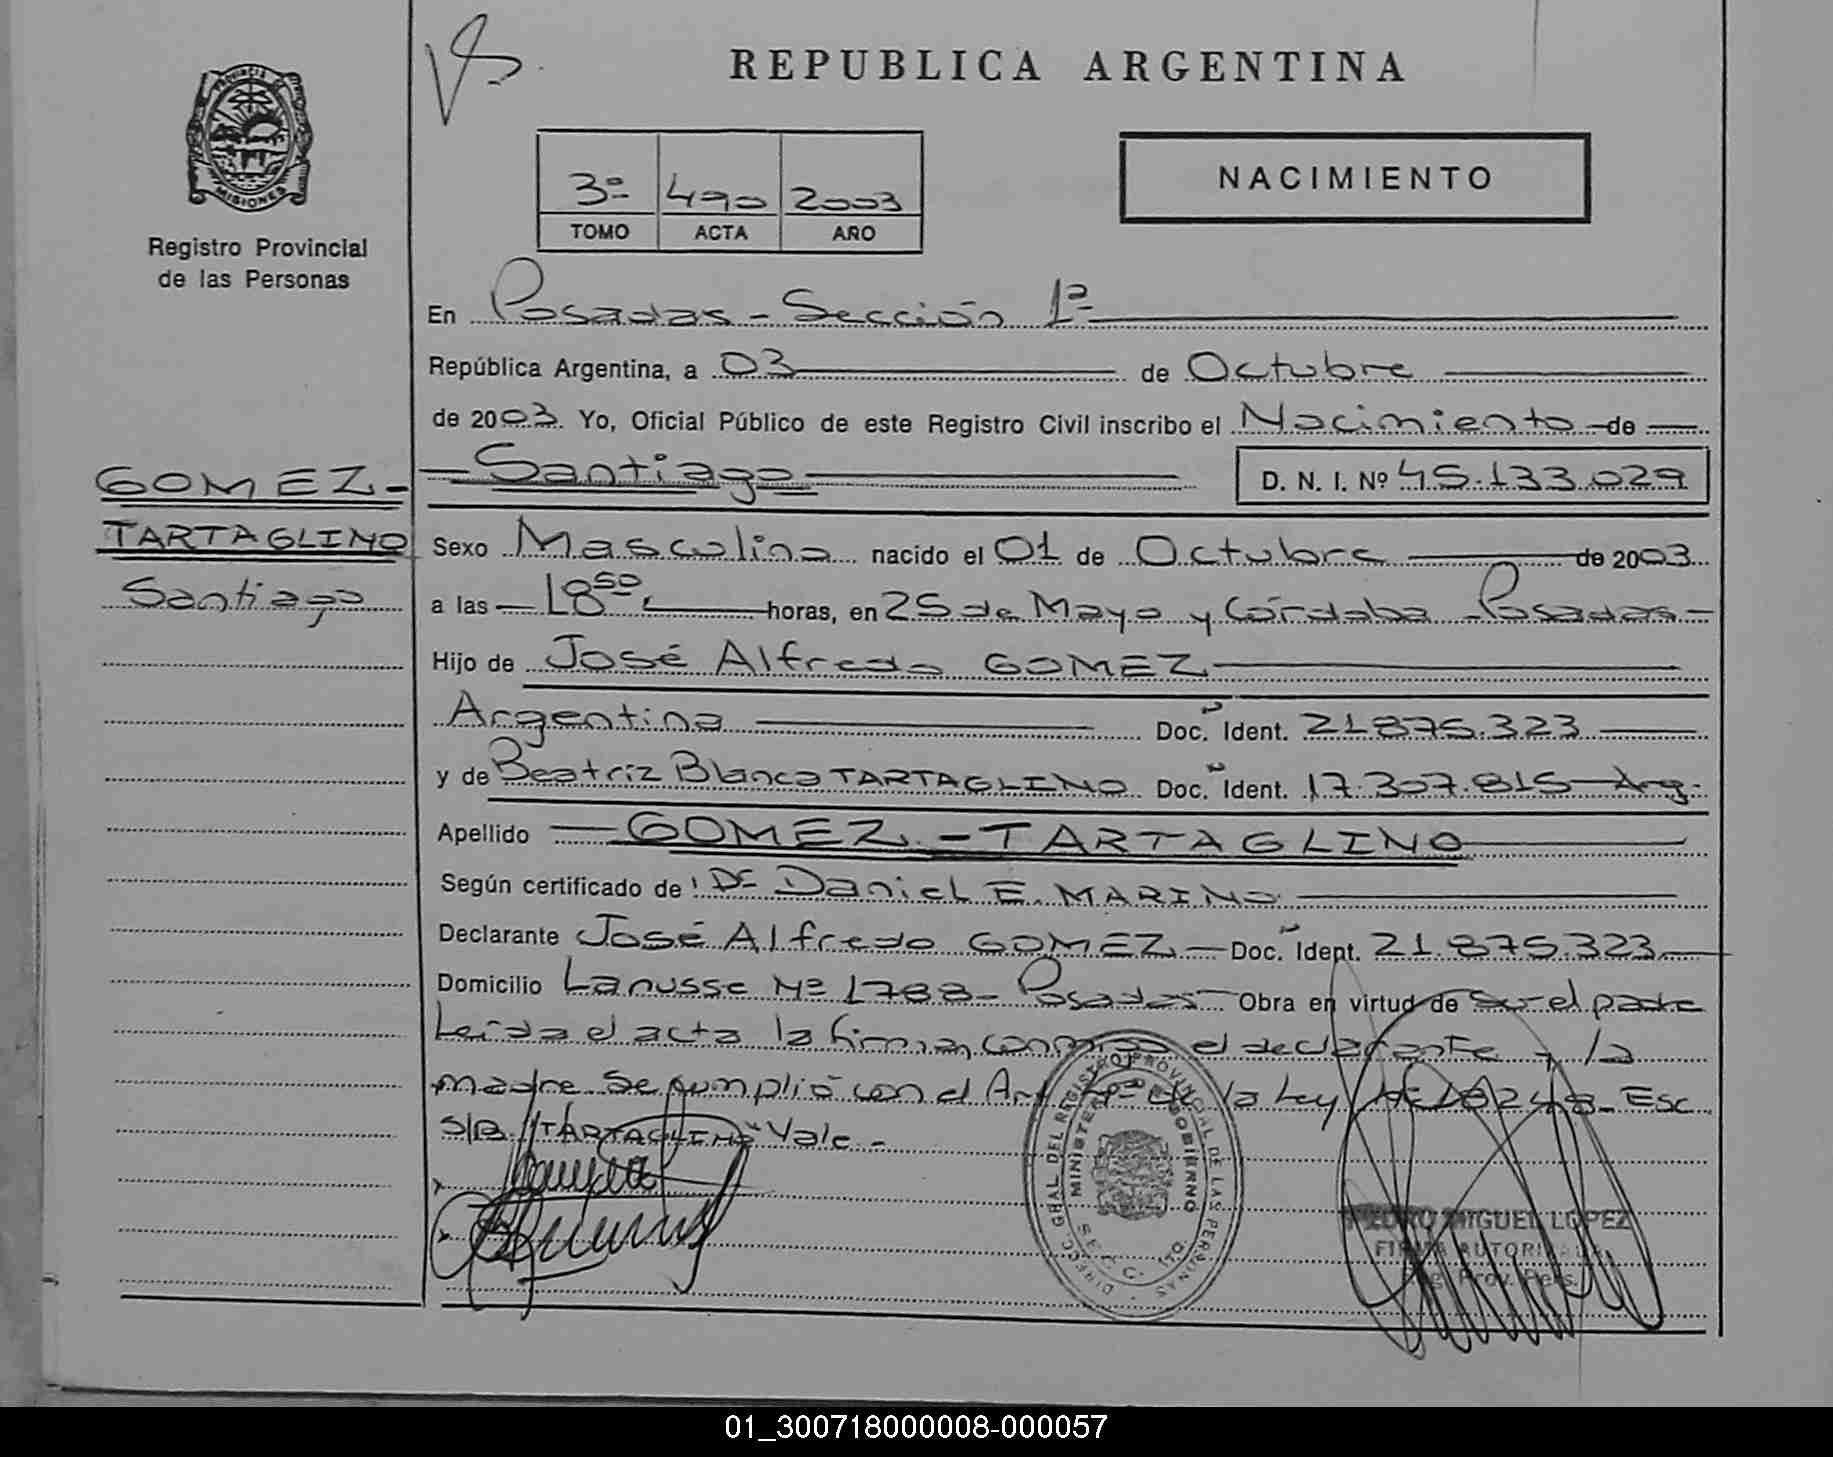 REPUBLICA ARGENTINA
PROVINCIA DE
MISIONES
Registro Provincial
de las Personas
3º 490 2003
TOMO ACTA AÑO
NACIMIENTO
En Posadas - Sección 1ª
República Argentina, a 03 de Octubre
de 2003. Yo, Oficial Público de este Registro Civil inscribo el Nacimiento de
GOMEZ-
TARTAGLINO
Santiago
Santiago D. N. I. Nº 45.133.029
Sexo Masculino nacido el 01 de Octubre de 2003
a las 18⁵⁰ horas, en 25 de Mayo y Córdoba - Posadas -
Hijo de José Alfredo GOMEZ
Argentina Doc. Ident. 21.875.323
y de Beatriz Blanca TARTAGLINO Doc. Ident. 17.307.815 - Arg.
Apellido GOMEZ - TARTAGLINO
Según certificado de: Dr Daniel E. MARINO
Declarante José Alfredo GOMEZ - Doc. Ident. 21.875.323
Domicilio Lanusse Nº 1788 - Posadas - Obra en virtud de Ser el padre
Leida el acta la firman conmigo el declarante y la
madre Se cumplió con el Art. 4º de la Ley Nº 18248 - Esc.
S/B. "TARTAGLINO" Vale. -
DIRECC. GRAL. DEL REGISTRO PROVINCIAL DE LAS PERSONAS
MINISTERIO GOBIERNO
SECC. 1ra.
PEDRO MIGUEL LOPEZ
FIRMA AUTORIZADA
Reg. Prov. Pers.
01_300718000008-000057